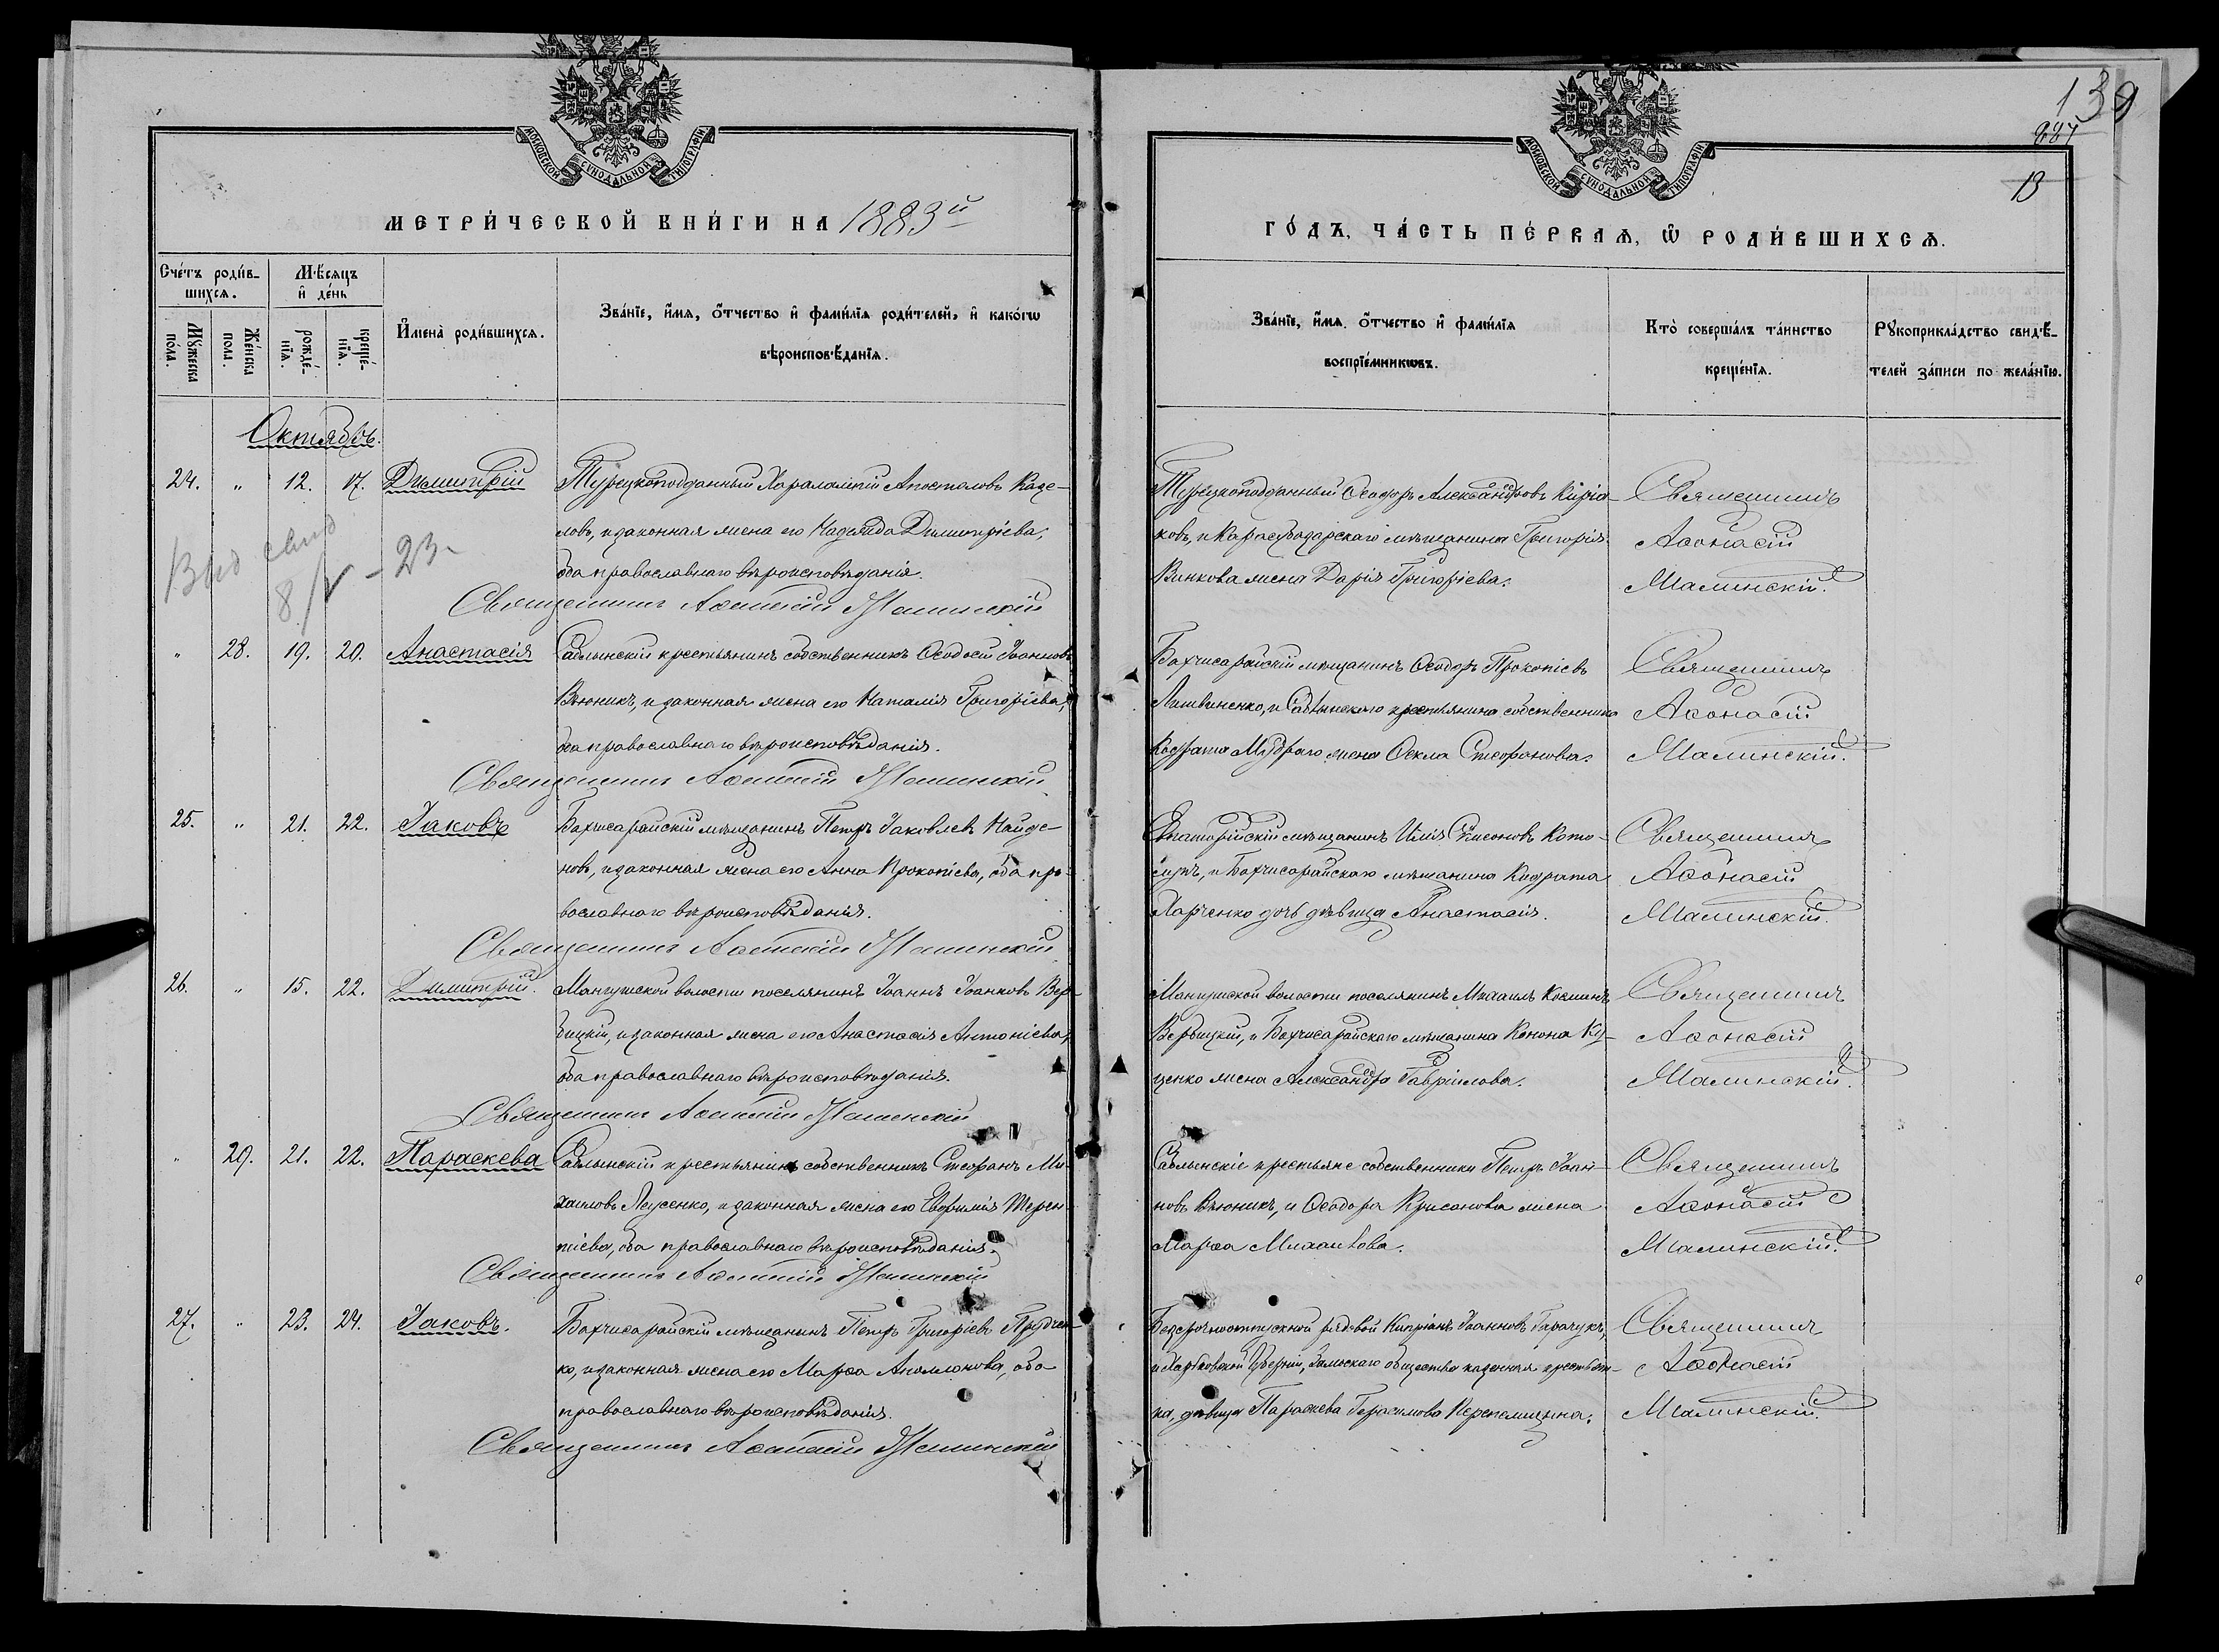 МОСКОВСКОЙ СѴНОДАЛЬНОЙ ТИПОГРАФІИ
МЕТРИ́ЧЕСКОЙ КНИ́ГИ НА 1883й
Сче́тъ роди́вшихся.
Мѣ́сяцъ и де́нь
Мꙋ́жеска по́ла.
Же́нска пола.
рожде́нїя.
креще́нїя.
Имена̀ роди́вшихся.
Зва́нїе, и́мя, о́тчество и фами́лїя роди́телей, и како́гѡ
вѣроисповѣ́данїя.
Октябрь.
24. " 12. 17. Димитрій
Турецкоподданный Харалампій Апостоловъ Казе-
ловъ, и законная жена его Надежда Димитріева,
оба православнаго вѣроисповѣданія.
Выд свид
8/V - 23
Священникъ Аѳанасій Малинскій
" 28. 19. 20. Анастасія
Саблынскій крестьянинъ собственникъ Ѳеодосій Іоанновъ
Вьюникъ, и законная жена его Наталія Григоріева,
оба православнаго вѣроисповѣданія.
Священникъ Аѳанасій Малинскій
25. " 21. 22. Іаковъ
Бахчисарайскій мѣщанинъ Петръ Іаковлевъ Найде-
новъ, и законная жена его Анна Прокопіева, оба пра-
вославнаго вѣроисповѣданія.
Священникъ Аѳанасій Малинскій
26. " 15. 22. Димитрій.
Мангушской волости поселянинъ Іоаннъ Іоанновъ Вер-
бицкій, и законная жена его Анастасія Антоніева,
оба православнаго вѣроисповѣданія.
Священникъ Аѳанасій Малинскій
" 29. 21. 22. Параскева
Саблынскій крестьянинъ собственникъ Стефанъ Ми-
хаиловъ Лусенко, и законная жена его Евфимія Терен-
тіева, оба православнаго вѣроисповѣданія.
Священникъ Аѳанасій Малинскій
27. " 23. 24. Іаковъ.
Бахчисарайскій мѣщанинъ Петръ Григоріевъ Прудчен-
ко, и законная жена его Марѳа Аполлонова, оба
православнаго вѣроисповѣданія.
Священникъ Аѳанасій Малинскій
МОСКОВСКОЙ СѴНОДАЛЬНОЙ ТИПОГРАФІИ
139
13
ГО́ДЪ, ЧА́СТЬ ПЕ́РВАЯ, Ѿ РОДИ́ВШИХСЯ.
Зва́нїе, и́мя, о́тчество и фами́лїя
воспрїе́мникѡвъ.
Кто̀ соверша́лъ та́инство
креще́нїя.
Рꙋкоприкла́дство свидѣ́-
телей за́писи по жела́нїю.
Турецкоподданный Ѳеодоръ Александровъ Киріа-
ковъ, и Карасубазарскаго мѣщанина Григорія
Винкова жена Дарія Григоріева.
Священникъ
Аѳонасій
Малинскій.
Бахчисарайскій мѣщанинъ Ѳеодоръ Прокопіевъ
Литвиненко, и Саблынскаго крестьянина собственника
Кодрата Мудраго жена Ѳекла Стефанова.
Священникъ
Аѳонасій
Малинскій.
Евпаторійскій мѣщанинъ Илія Симоновъ Кото-
, и Бахчисарайскаго мѣщанина Кодрата
Харченко дочь дѣвица Анастасія.
Священникъ
Аѳонасій
Малинскій.
Мангушской волости поселянинъ Михаилъ Косминъ
Вербицкій, и Бахчисарайскаго мѣщанина Конона Ку-
ценко жена Александра Гавріилова.
Священникъ
Аѳонасій
Малинскій.
Саблынскіе крестьяне собственники Петръ Іоан-
новъ Вьюникъ, и Ѳеодора Крисанова жена
Марѳа Михаилова.
Священникъ
Аѳонасій
Малинскій.
Безсрочноотпускной рядовой Кипріанъ Іоанновъ Гарачукъ,
и Харьковской Губерніи, общества казенная крестьян-
ка, дѣвица Параскева Герасимова Перепелицина.
Священникъ
Аѳонасій
Малинскій.